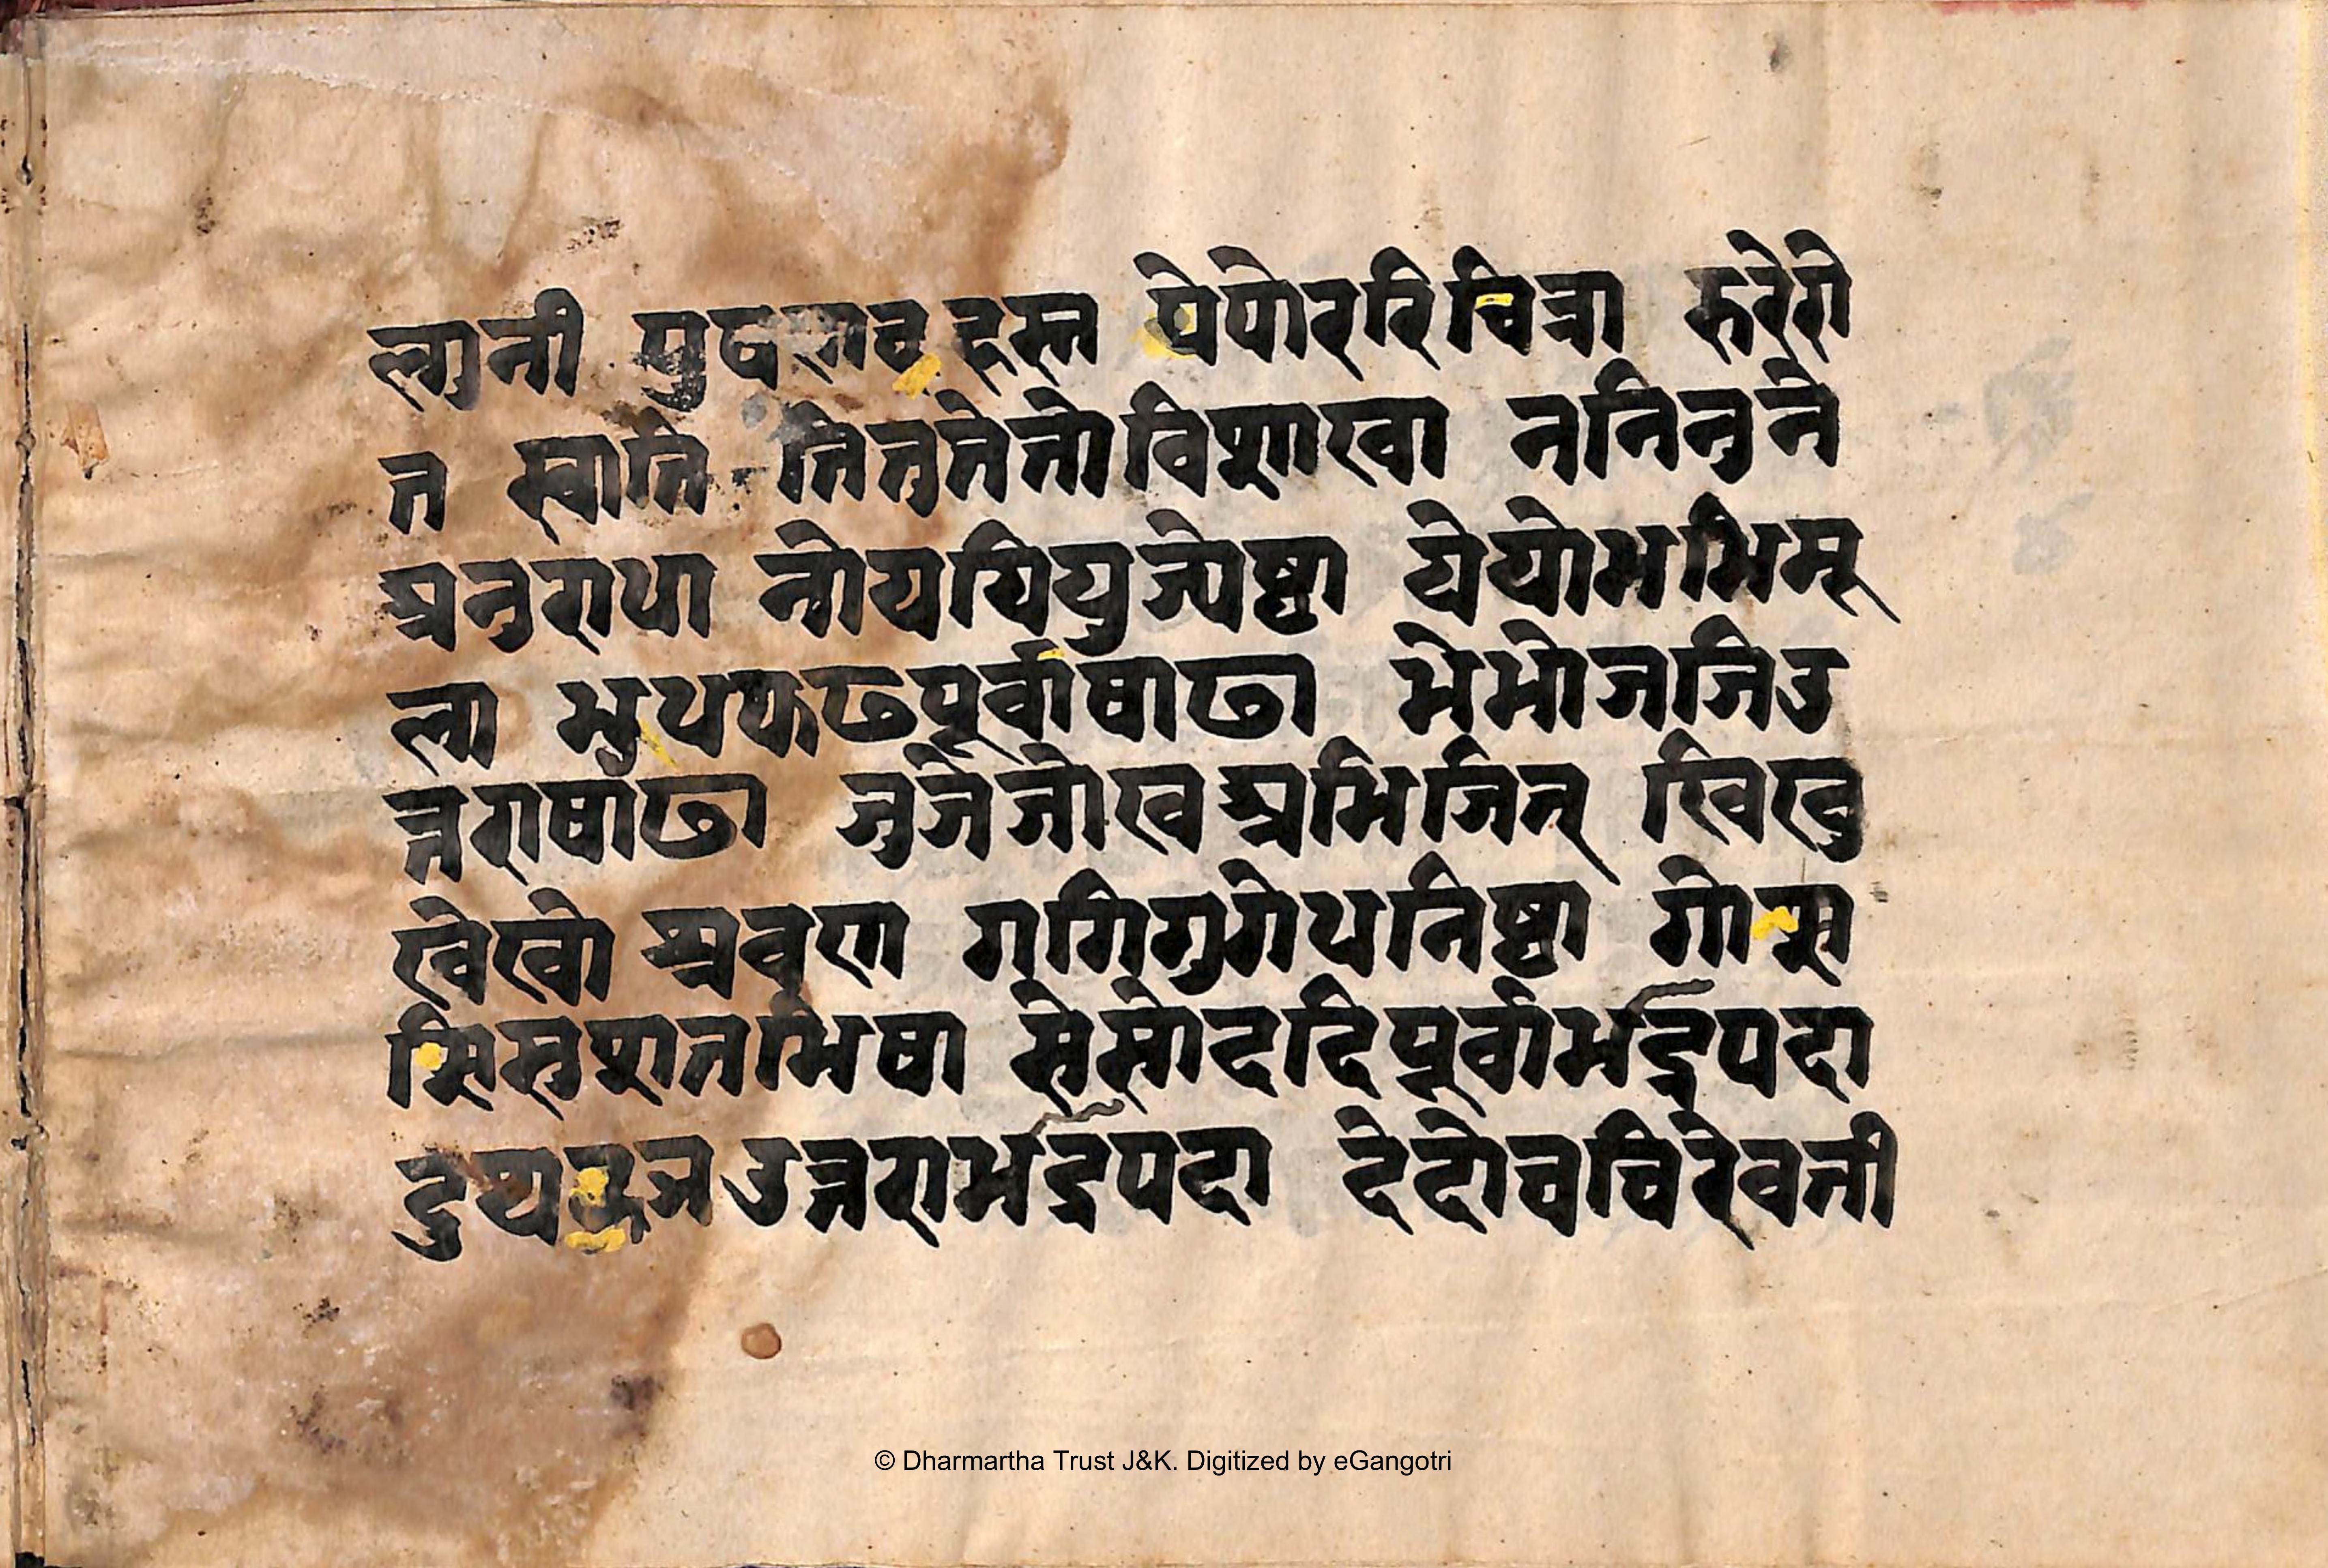 ल्गुनी पुषणाठ हस्त पेपोररिचित्रा रुरेरो
त स्वाति तितुतेतोविशाखा ननिनुने
अनुराधा नोययियुज्येष्ठा येयोभभिमू
ला भुधफढपूर्वाषाढा भेभोजजिउ
त्तराषाढा जुजेजोखअभिजित् खिखु
खेखो श्रवण गगिगुगेधनिष्ठा गोस
सिसुशतभिषा सेसोददिपूर्वाभर्द्रपदा
दु उत्तराभर्द्रपदा देदोचचिरेवती
© Dharmartha Trust J&K. Digitized by eGangotri